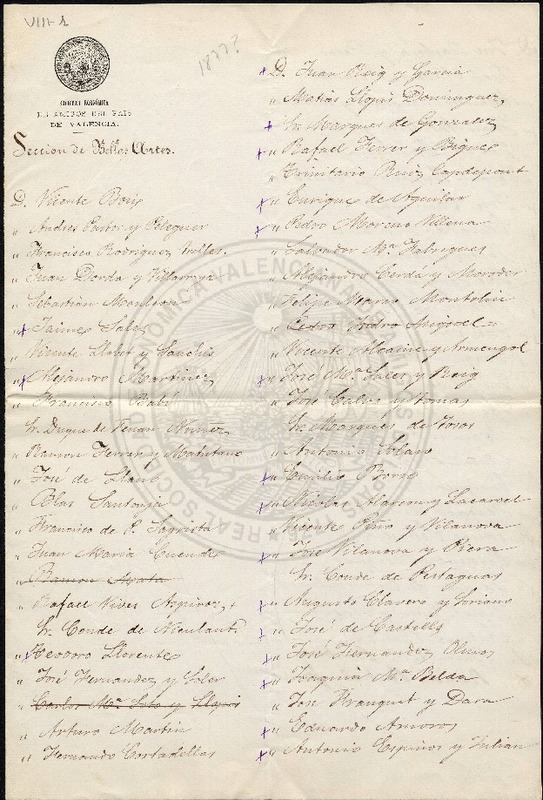 VIII-1
1877?
SOCIEDAD ECONÓMICA
DE AMIGOS DEL PAÍS
DE VALENCIA.
Seccion de Bellas Artes.
D. Vicente Boix
" Andres Pastor y Peleguer
" Francisco Rodriguez
" Juan Dorda y Villarroya
" Sebastián Monleon
" Jaime Sales
" Vicente Lloret y Sanchis
" Alejandro Martinez
" Francisco
Sr. Duque de Fernan Nuñez
" Ramon Ferrer y Matutano
" José de Llano
" Blas Santonja
" Francisco de P.
" Juan Maria Cuende
" Ramon
" Rafael Vives Azpiroz
Sr. Conde de Niculant
" Teodoro Llorente
" José Hernandez y Soler
" Carlos Mª Soto y Llopis
" Arturo Martin
" Fernando Cortadellas
D. Juan Reig y Garcia
" Matias Llopis Dominguez
Sr. Marques de Gonzalez
" Rafael Ferrer y Bigues
" Trinitario Ruiz Capdepont
" Enrique de Aguilar
" Pedro Moreno Villena
" Salvador Mª Fabregues
" Alejandro Cerdá y Moroder
" Felipe Mateo Montolin
" Pedro
" Vicente Alcaine y Armengol
" José Mª Sales y Reig
" José Calvo y Tomas
Sr. Marques de Tosos
" Antonio Solano
" Emilio Borso
" Nicolas Alarcon y Lacarcel
" Vicente Piño y Vilanova
" José Vilanova y Piera
Sr. Conde de Pestaguas
" Augusto Clavero y Soriano
" José de Castells
" José Hernandez Olmos
" Joaquin Mª Belda
" José Franquet y Dara
" Eduardo Amoros
" Antonio Espinos y Julian
REAL SOCIEDAD ECONOMICA VALENCIANA